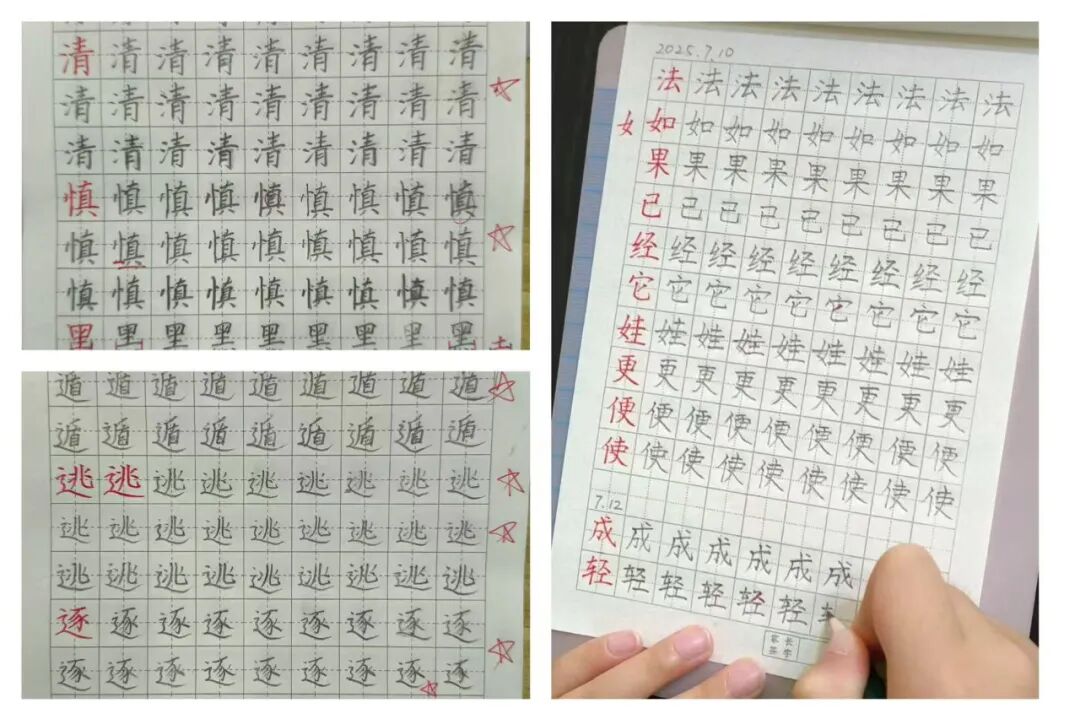 清清清清清清清清清
清清清清清清清清清
清清清清清清清清清
慎慎慎慎慎慎慎慎慎
慎慎慎慎慎慎慎慎慎
慎慎慎慎慎慎慎慎慎
黑黑黑黑黑黑黑黑黑
遁遁遁遁遁遁遁遁遁
遁遁遁遁遁遁遁遁遁
逃逃逃逃逃逃逃逃逃
逃逃逃逃逃逃逃逃逃
逃逃逃逃逃逃逃逃逃
逐逐逐逐逐逐逐逐逐
逐逐逐逐逐逐逐逐逐
2025.7.10
法法法法法法法法法
女如如如如如如如如如
果果果果果果果果果
已已已已已已已已已
经经经经经经经经经
它它它它它它它它它
娃娃娃娃娃娃娃娃娃
更更更更更更更更更
便便便便便便便便便
使使使使使使使使使
7.12
成成成成成成成
轻轻轻轻轻轻
家长
签字